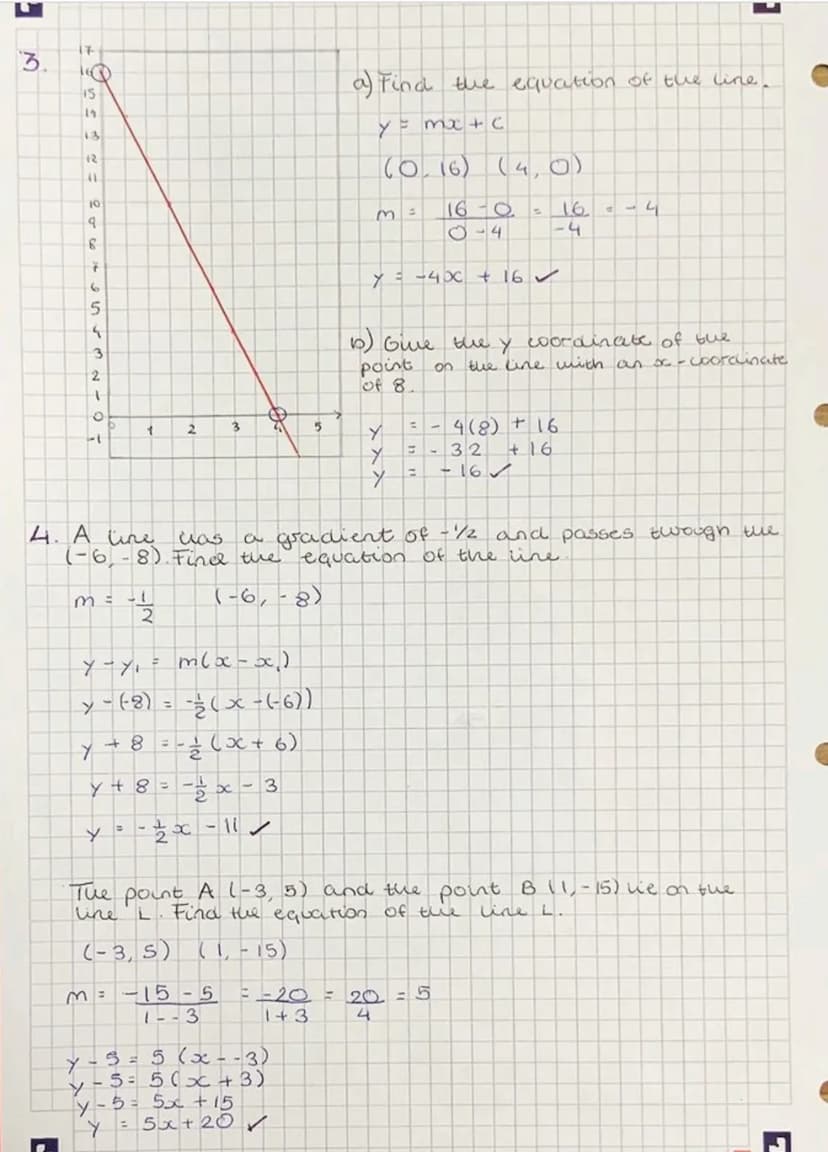 3.
17
16
15
14
13
12
11
10
9
8
7
6
5
4
3
2
1
0
-1
0 1 2 3 4 5
a) Find the equation of the line.
y = mx + c
(0, 16) (4, 0)
m = 16 - 0 / 0 - 4 = 16 / -4 = -4
y = -4x + 16 ✓
b) Give the y coordinate of the
point on the line with an x-coordinate
of 8.
y = - 4(8) + 16
y = - 32 + 16
y = - 16 ✓
4. A line has a gradient of -1/2 and passes through the
(-6, -8). Find the equation of the line
m = -1/2 (-6, -8)
y - y₁ = m(x - x₁)
y - (-8) = -1/2 (x - (-6))
y + 8 = -1/2 (x + 6)
y + 8 = -1/2 x - 3
y = -1/2 x - 11 ✓
The point A (-3, 5) and the point B (1, -15) lie on the
line L. Find the equation of the line L.
(-3, 5) (1, -15)
m = -15 - 5 / 1 - -3 = -20 / 1 + 3 = 20 / 4 = 5
y - 5 = 5 (x - -3)
y - 5 = 5 (x + 3)
y - 5 = 5x + 15
y = 5x + 20 ✓